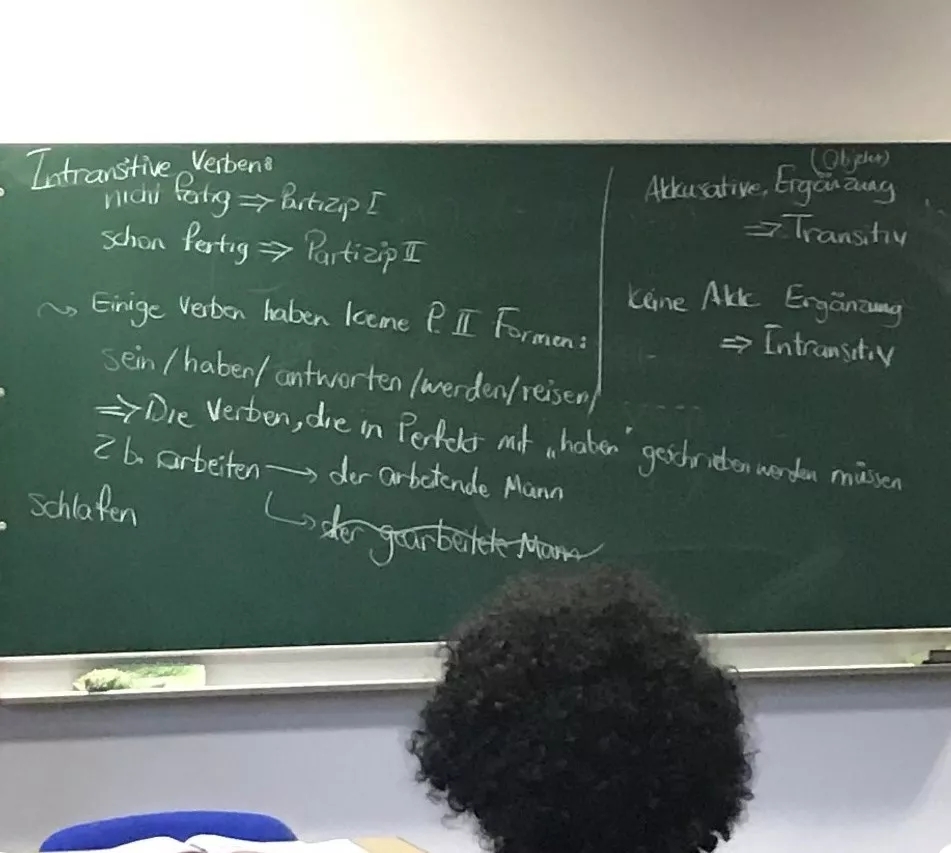 Intransitive Verben:
nicht fertig ⇒ Partizip I
schon fertig ⇒ Partizip II
~> Einige Verben haben keine P. II Formen:
sein/haben/antworten/werden/reisen/
⇒ Die Verben, die in Perfekt mit „haben" geschrieben werden müssen
z b. arbeiten → der arbeitende Mann
↳ der gearbeitete Mann
schlafen
(Objekt)
Akkusative, Ergänzung
⇒ Transitiv
keine Akk Ergänzung
⇒ Intransitiv